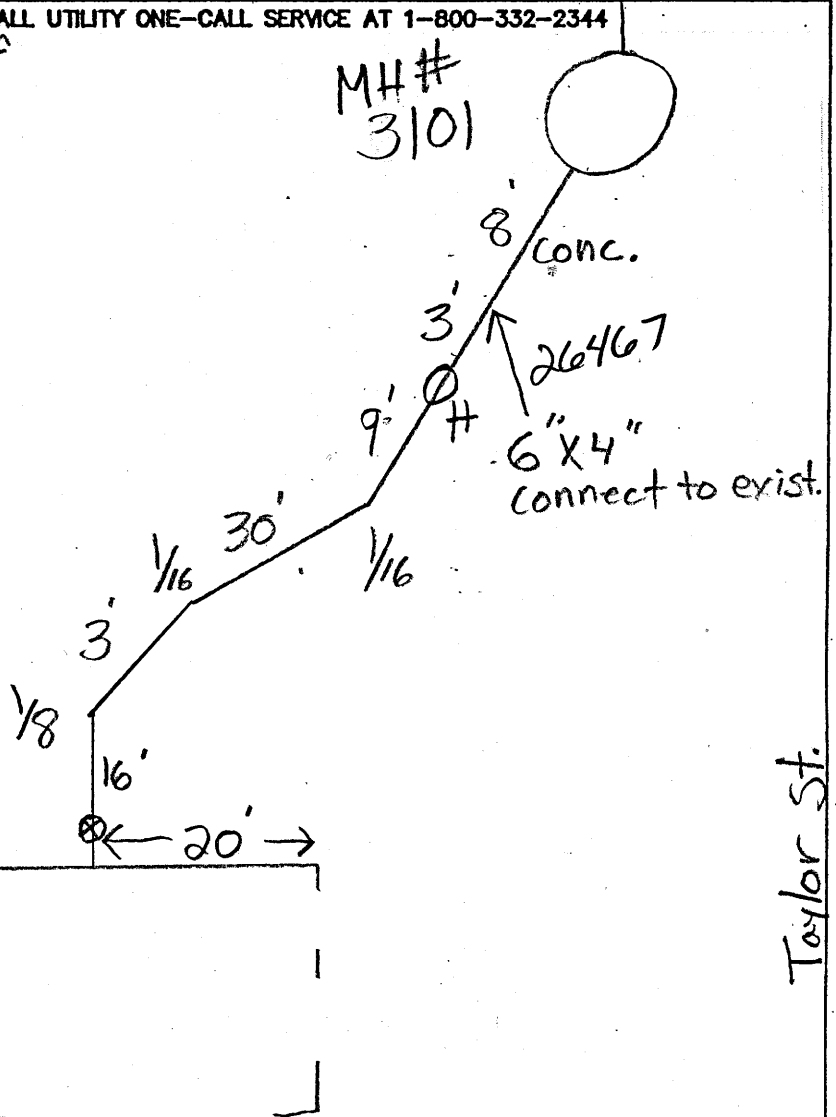 ALL UTILITY ONE-CALL SERVICE AT 1-800-332-2344
MH#
3101
8'
conc.
3'
26467
9'
H
6"X4"
connect to exist.
30'
1/16
1/16
3'
1/8
16'
20'
Taylor St.